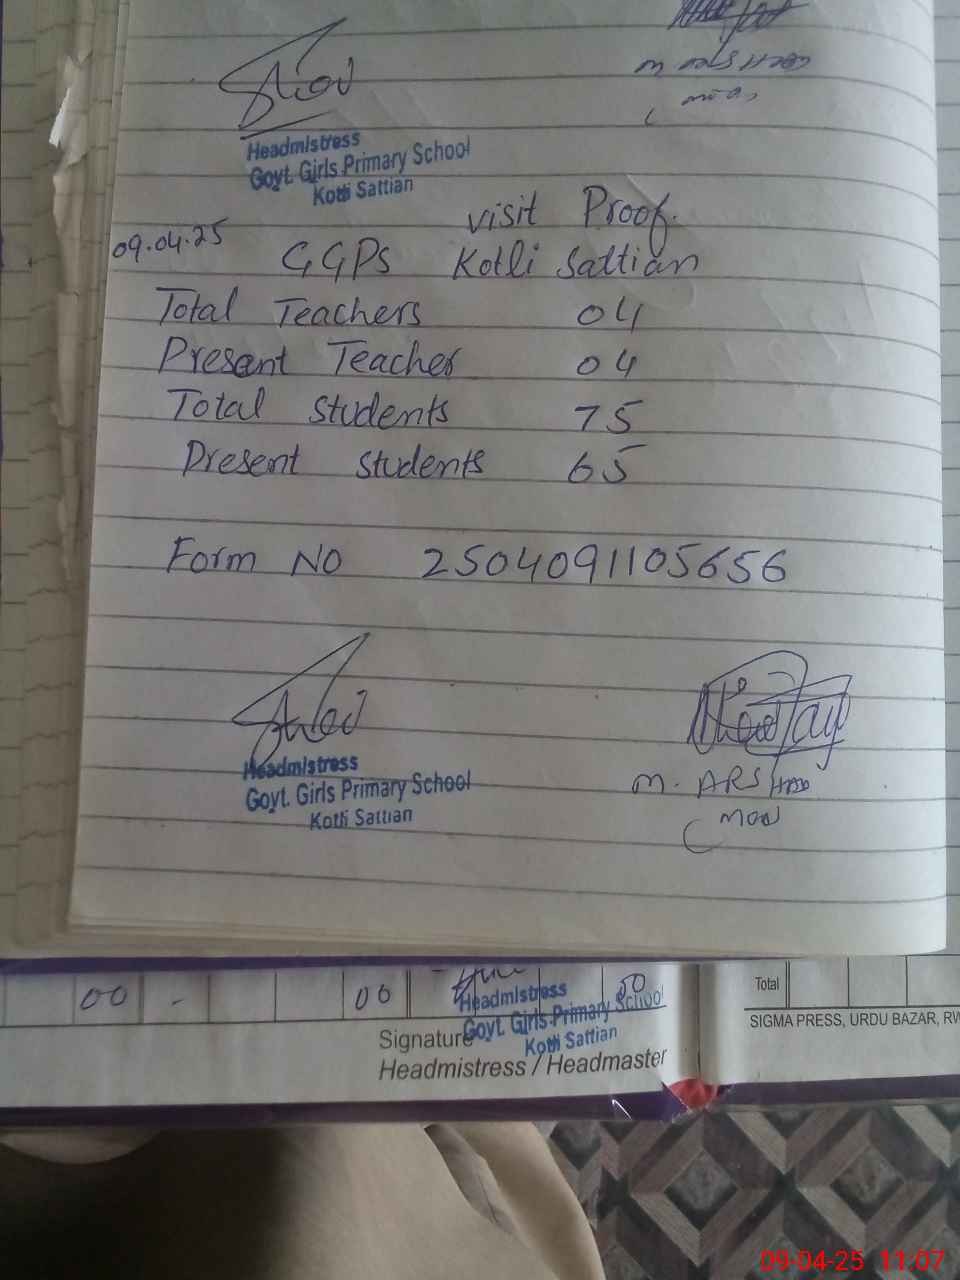 Headmistress
Govt. Girls Primary School
Kotli Sattian
visit Proof.
09.04.25
GGPS Kotli Sattian
Total Teachers 04
Present Teacher 04
Total students 75
Present students 65
Form NO 2504091105656
Headmistress
Govt. Girls Primary School
Kotli Sattian
M. ARSHAD
00 - 00
Total
Headmistress
Govt. Girls Primary School
Kotli Sattian
Signature
Headmistress / Headmaster
SIGMA PRESS, URDU BAZAR, RW
09-04-25 11:07